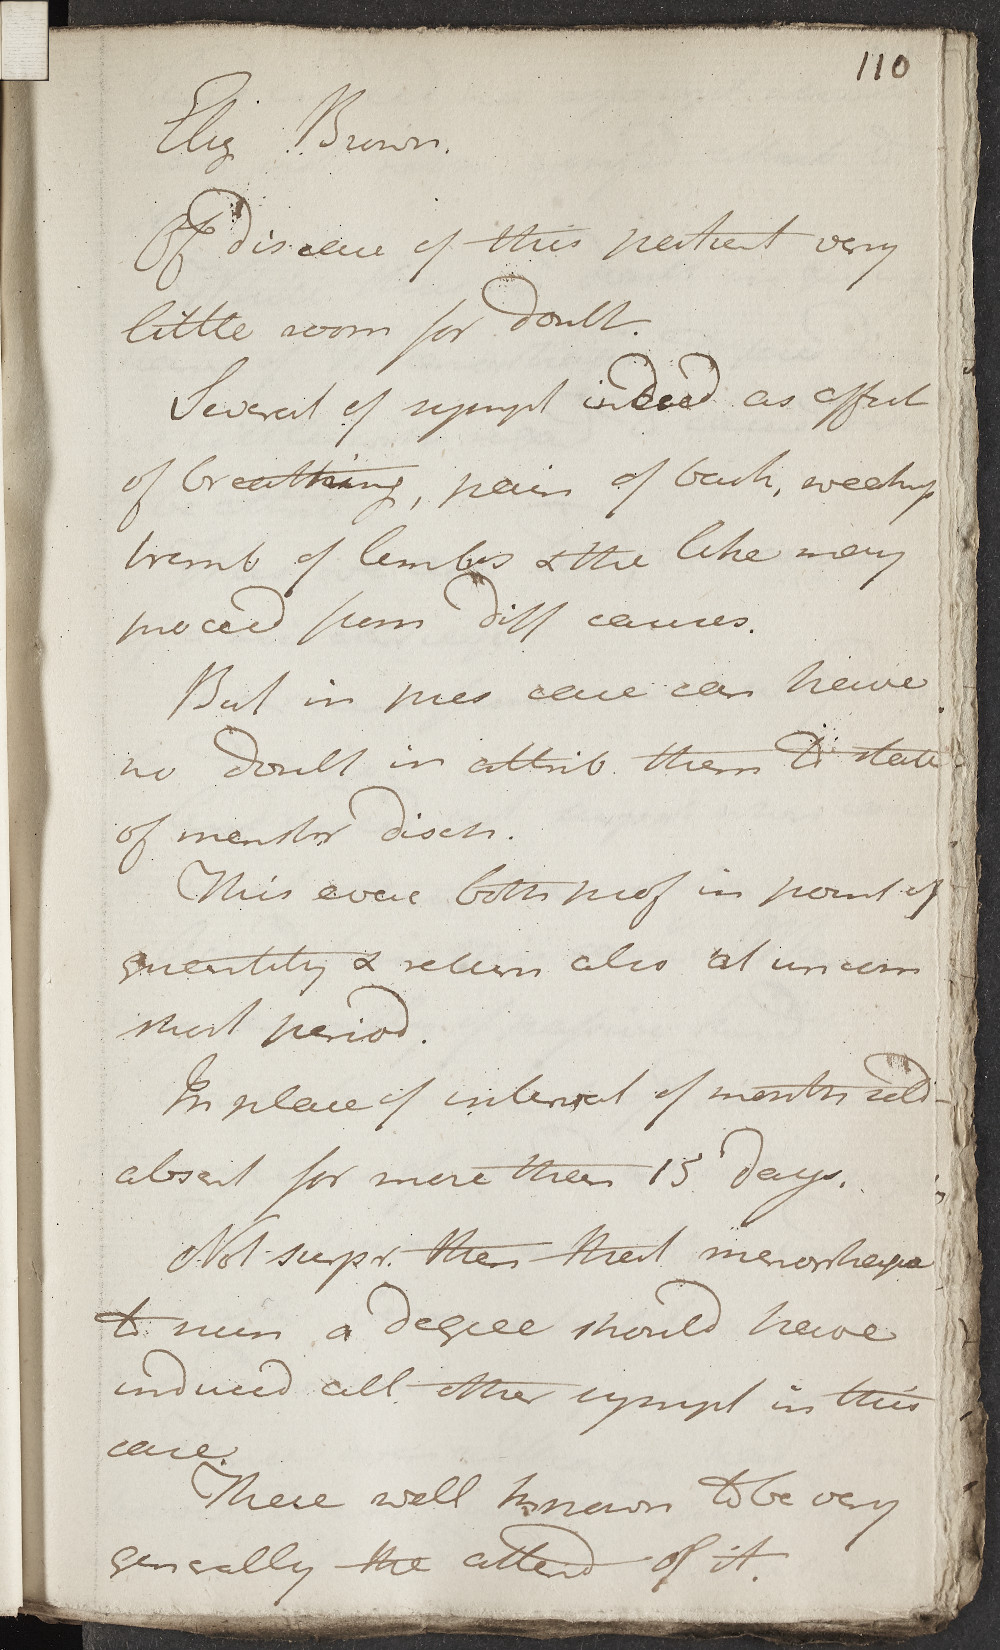 110
Eliz Brown.
Of disease of this patient very
little room for doubt.
Several of sympt indeed as affect
of breathing, pain of back, weakn
tremb of limbs & the like may
proceed from diff causes.
But in pres case can have
no doubt in attrib. them to state
of menstr disch.
This even both prof in point of
quantity & return also at uncom
short period.
In place of interval of month seld
absent for more than 15 days.
Not surpr. then that menorrhagia
to such a degree should have
induced all other sympt in this
case.
These well known to be very
generally the attend of it.